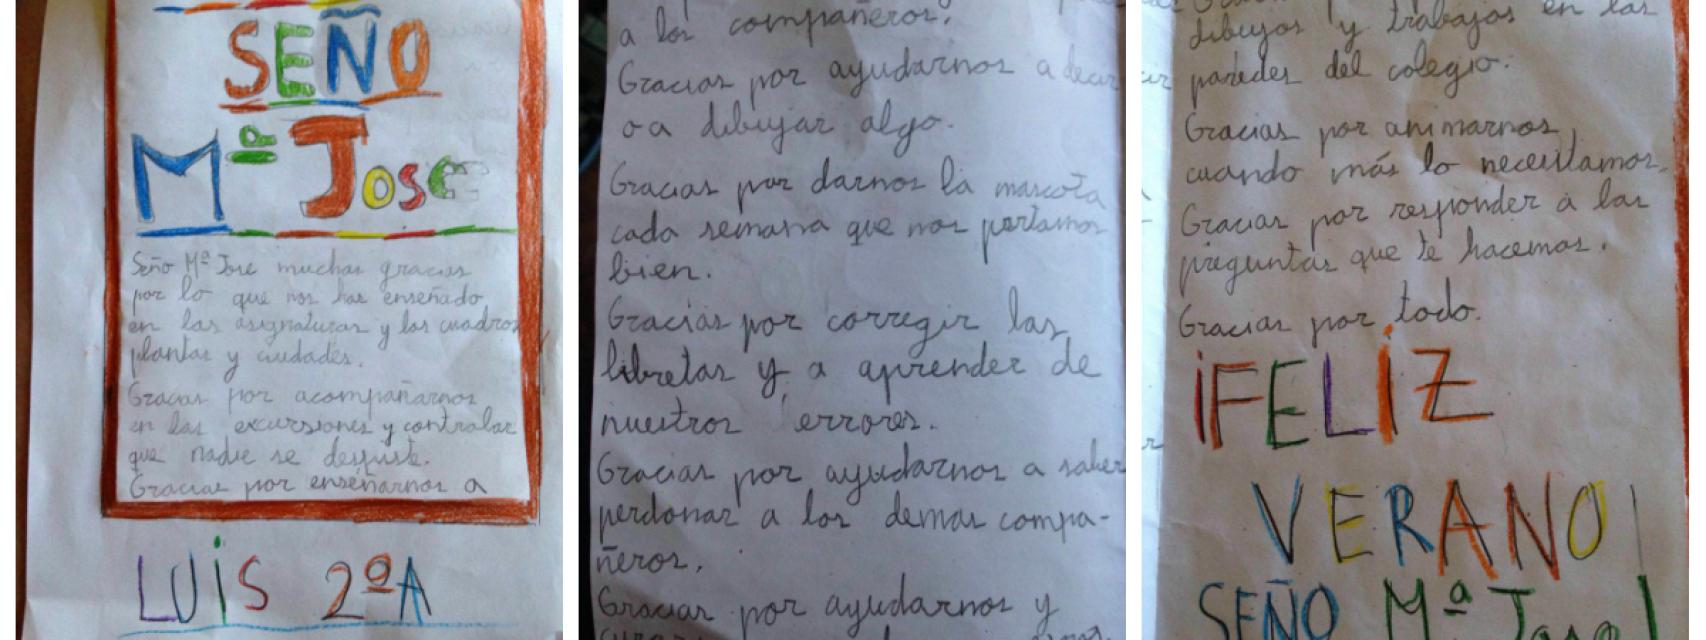 SEÑO
Mª Jose
Seño Mª Jose muchas gracias
por lo que nos has enseñado
en las asignaturas y los cuadros
plantas y ciudades.
Gracias por acompañarnos
en las excursiones y controlar
que nadie se despiste.
Gracias por enseñarnos a
LUIS 2ºA
a los compañeros.
Gracias por ayudarnos a decir
o a dibujar algo.
Gracias por darnos la mascota
cada semana que nos portamos
bien.
Gracias por corregir las
libretas y a aprender de
nuestros errores.
Gracias por ayudarnos a saber
perdonar a los demas compa-
ñeros.
Gracias por ayudarnos y
dibujos y trabajos en las
paredes del colegio.
Gracias por animarnos,
cuando más lo necesitamos.
Gracias por responder a las
preguntas que te hacemos.
Gracias por todo.
¡FELIZ
VERANO
SEÑO Mª Jose!